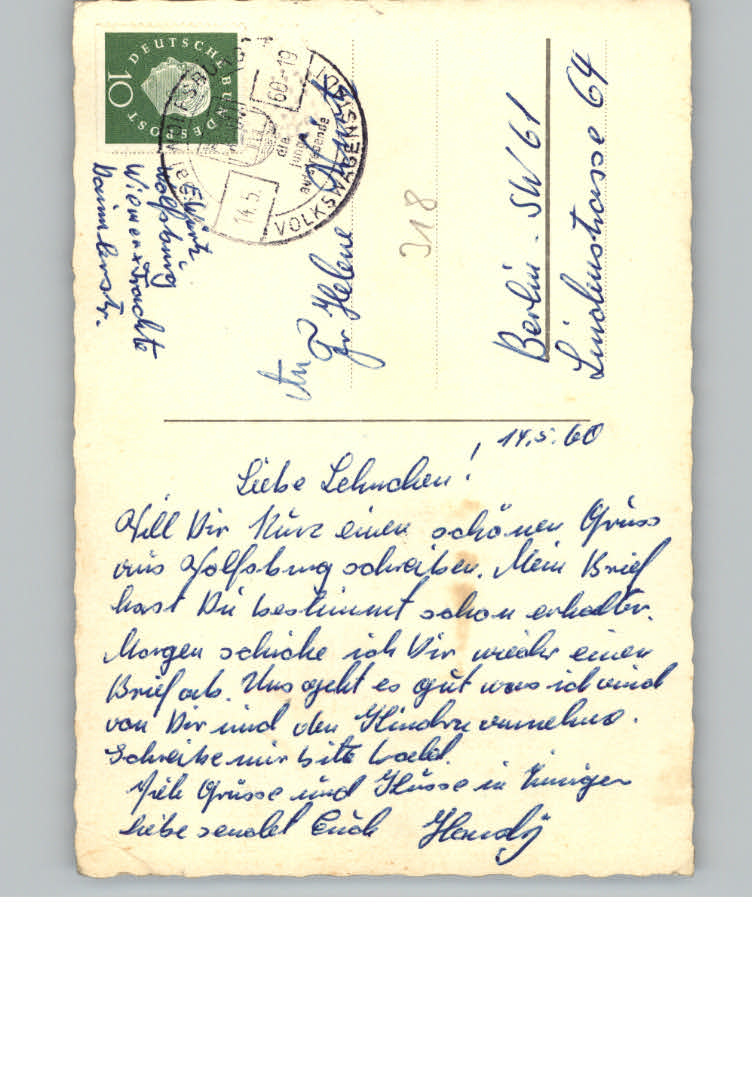 14.5.60
Liebe Lehnchen!
Will Dir Kurz einen schönen Gruss
aus Wolfsburg schreiben. Mein Brief
hast Du bestimmt schon erhalten.
Morgen schicke ich Dir wieder einen
Brief ab. Uns geht es gut was ich auch
von Dir und den Kindern annehme.
Schreibe mir bitte bald.
Viele Grüsse und Küsse in inniger
Liebe sendet Euch
An
Fr Helene
Berlin-SW61
Lindenstrasse 64
318
E. Würtz
Wolfsburg
Wiener + Trachte
Daimlerstr.
DEUTSCHE BUNDESPOST
10
WOLFSBURG
14.5.
60-19
die
junge
aufstrebende
VOLKSWAGENSTADT